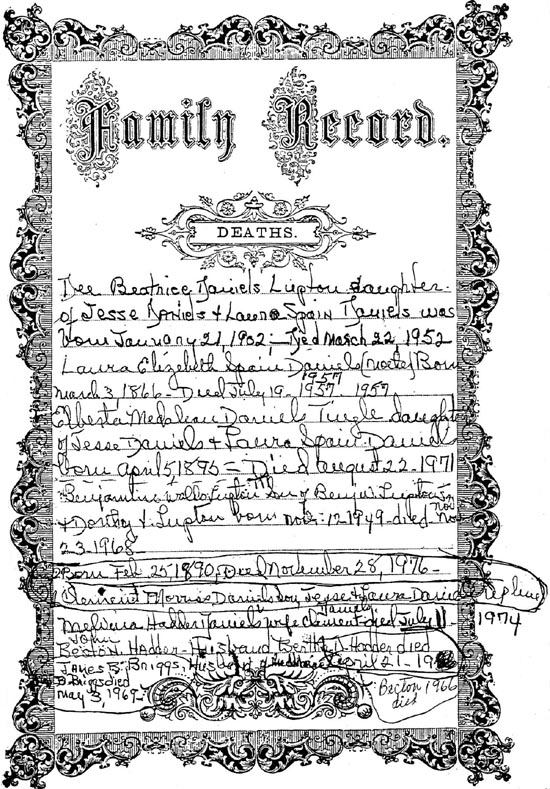 Family Record.
DEATHS.
Dee Beatrice Daniels Lupton daughter
of Jesse Daniels & Laura Spain Daniels was
born January 21, 1902; Died March 22, 1952
Laura Elizabeth Spain Daniels Born
1957
March 3, 1866 - Died July 19 - 1957. 1957
Daniels Tingle daughter
of Jesse Daniels & Laura Spain Daniels
born April 5 1895 - Died August 22 - 1971
Benjamin Lupton III son of Benj. W. Lupton Jr
& Dorothy Lupton born Nov: 12-1949 - died Nov
23-1968
Born Feb 25, 1890, Died November 28, 1976 -
Clement Morris Daniels son Jesse & Laura Daniels
Melvina Hadder Daniels wife Clement died July 11
Daniels
1974
John
Hadder - Husband Bertha Hadder died
James B. Briggs, Husband of April 21 - 19
B. Briggs died
May 3, 1969
Becton 1966
died